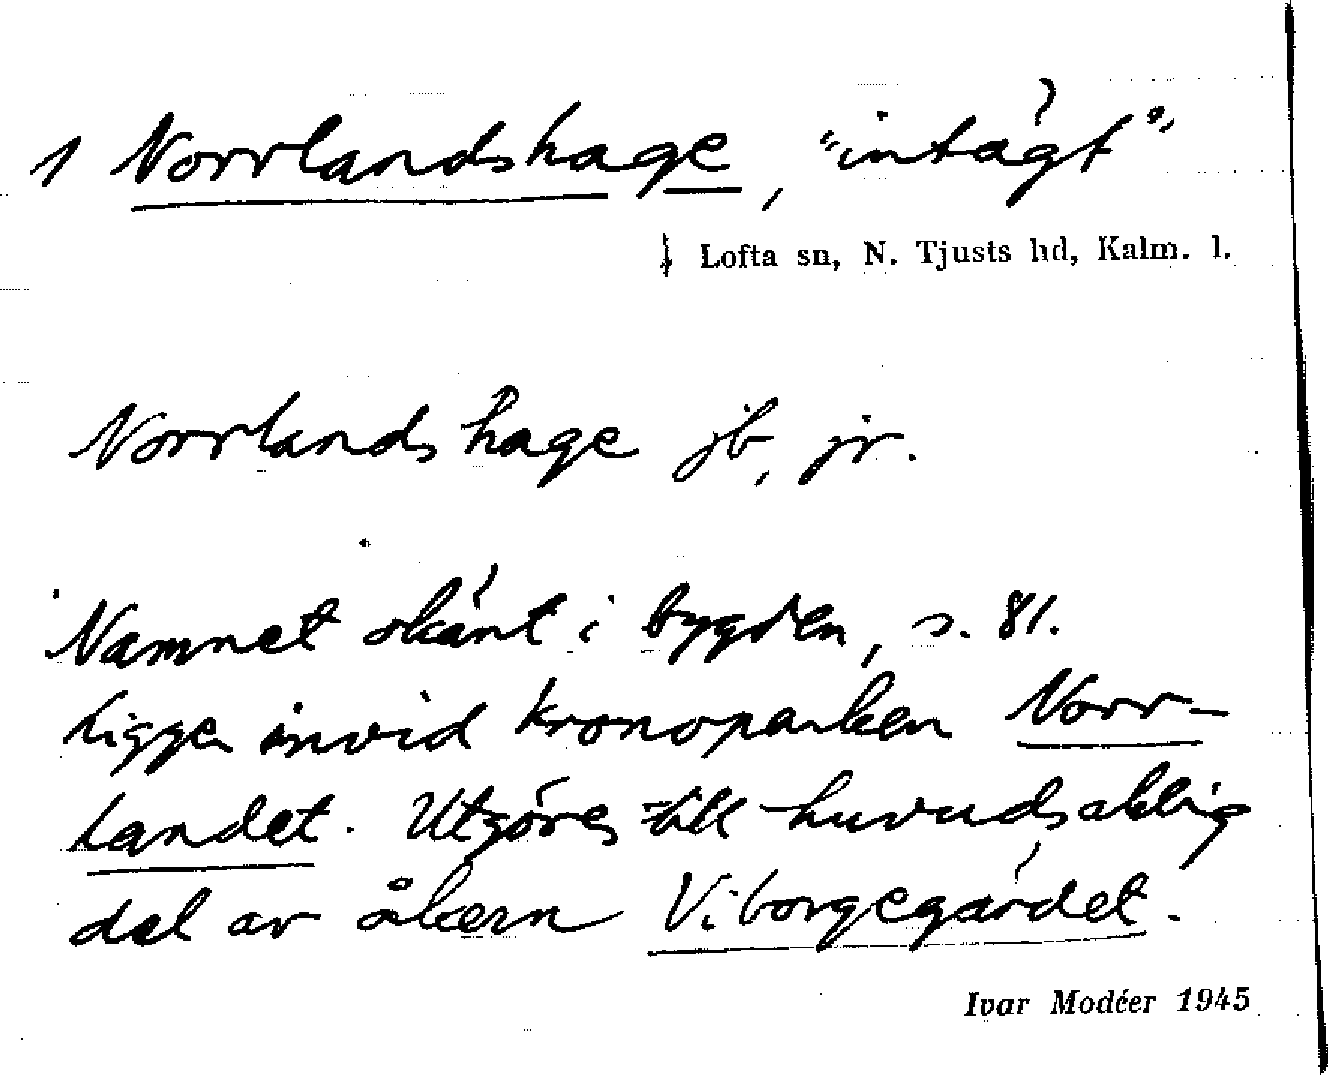 1 Norrlandshage, "intägt"
} Lofta sn, N. Tjusts hd, Kalm. l.
Norrlandshage jb, jr.
Namnet okänt i bygden, s. 81.
Ligger invid kronoparken Norr-
landet. Utgöres till huvudsaklig
del av åkern Viborgegärdet.
Ivar Modéer 1945